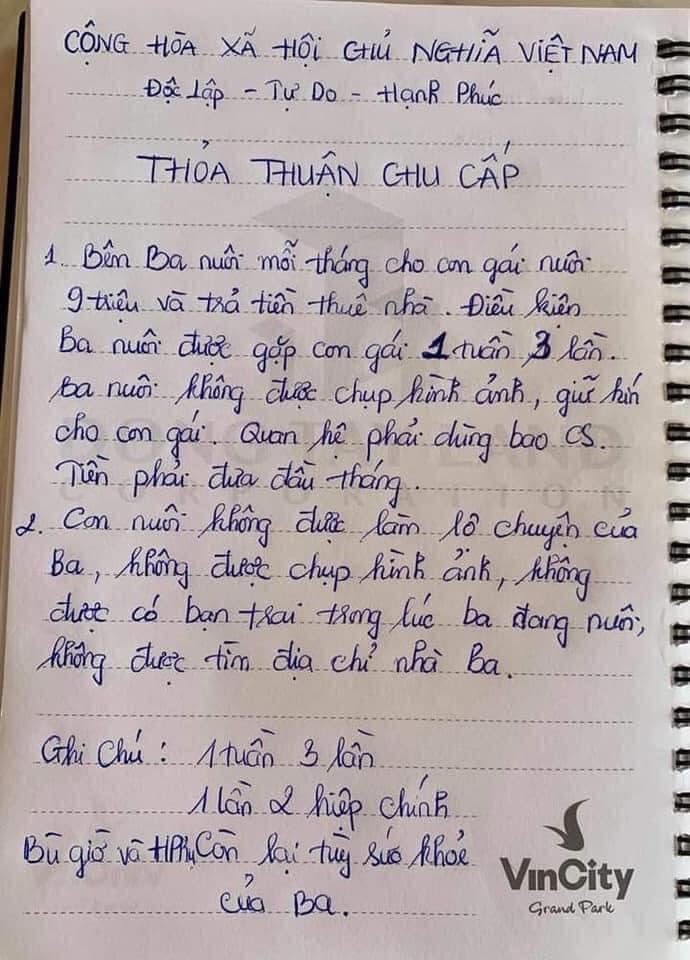 CỘNG HÒA XÃ HỘI CHỦ NGHĨA VIỆT NAM
Độc Lập - Tự Do - Hạnh Phúc
THỎA THUẬN CHU CẤP
1. Bên Ba nuôi mỗi tháng cho con gái nuôi
9 triệu và trả tiền thuê nhà. Điều kiện
Ba nuôi được gặp con gái 1 tuần 3 lần.
Ba nuôi không được chụp hình ảnh, giữ kín
cho con gái. Quan hệ phải dùng bao CS.
Tiền phải đưa đầu tháng.
2. Con nuôi không được làm lộ chuyện của
Ba, không được chụp hình ảnh, không
được có bạn trai trong lúc ba đang nuôi,
không được tìm địa chỉ nhà Ba.
Ghi Chú : 1 tuần 3 lần
1 lần 2 hiệp chính
Bù giờ và HPhụ Còn lại tùy sức khỏe
của Ba.
VinCity
Grand Park
LAND
CORPORATION